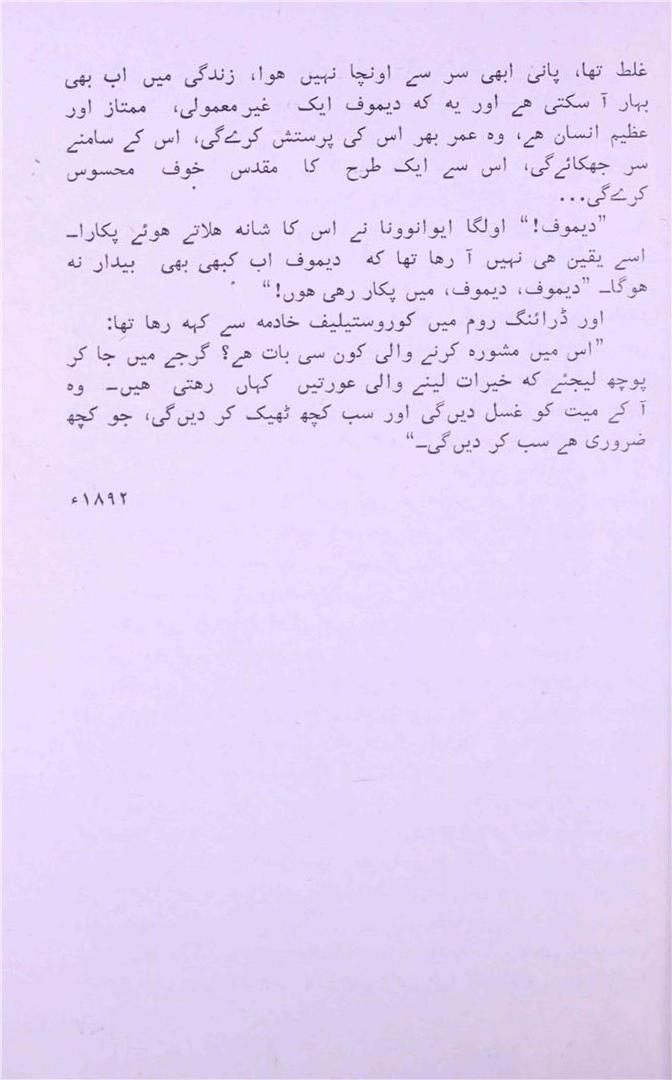 غلط تھا، پانی ابھی سر سے اونچا نہیں ہوا، زندگی میں اب بھی
بہار آ سکتی ہے اور یہ کہ دیموف ایک غیر معمولی، ممتاز اور
عظیم انسان ہے، وہ عمر بھر اس کی پرستش کرےگی، اس کے سامنے
سر جھکائےگی، اس سے ایک طرح کا مقدس خوف محسوس
کرےگی...
”دیموف!“ اولگا ایوانوونا نے اس کا شانہ ہلاتے ہوئے پکارا۔
اسے یقین ہی نہیں آ رہا تھا کہ دیموف اب کبھی بھی بیدار نہ
ہوگا۔ ”دیموف، دیموف، میں پکار رہی ہوں!“
اور ڈرائنگ روم میں کوروستیلیف خادمہ سے کہہ رہا تھا:
”اس میں مشورہ کرنے والی کون سی بات ہے؟ گرجے میں جا کر
پوچھ لیجئے کہ خیرات لینے والی عورتیں کہاں رہتی ہیں۔ وہ
آ کے میت کو غسل دیں گی اور سب کچھ ٹھیک کر دیں گی، جو کچھ
ضروری ہے سب کر دیں گی۔“
۱۸۹۲ء